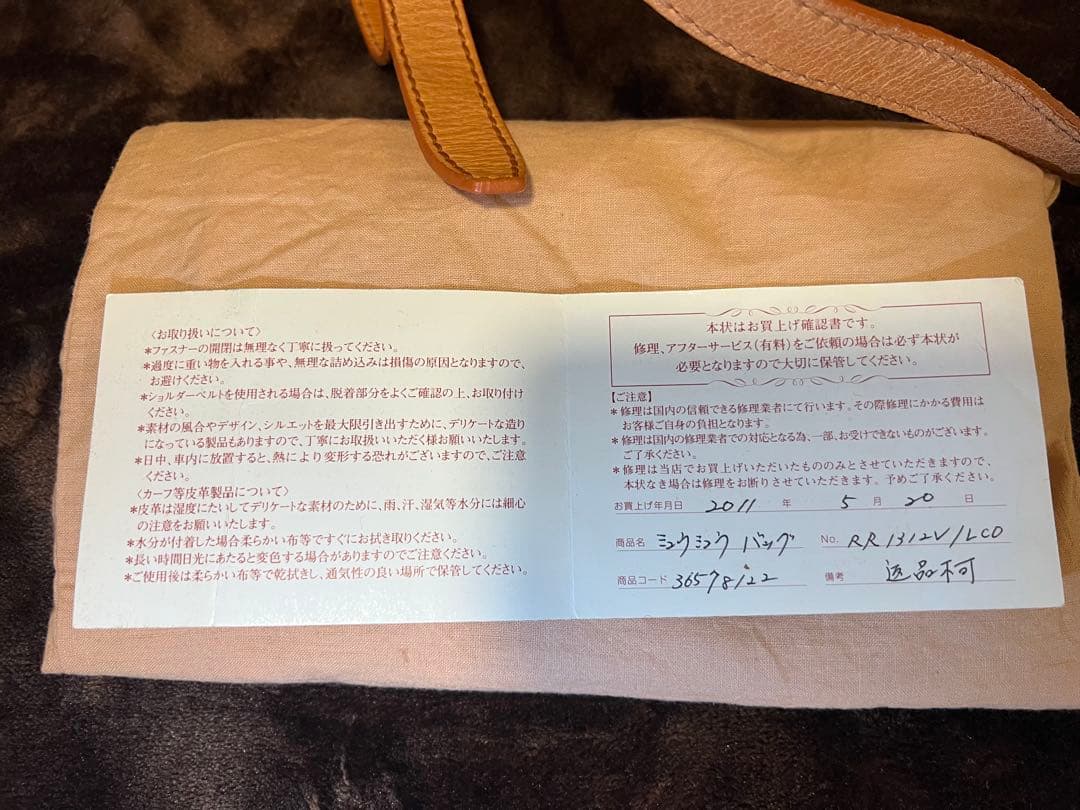 〈お取り扱いについて〉
*ファスナーの開閉は無理なく丁寧に扱ってください。
*過度に重い物を入れる事や、無理な詰め込みは損傷の原因となりますので、
お避けください。
*ショルダーベルトを使用される場合は、脱着部分をよくご確認の上、お取り付け
ください。
*素材の風合やデザイン、シルエットを最大限引き出すために、デリケートな造り
になっている製品もありますので、丁寧にお取扱いいただく様お願いいたします。
*日中、車内に放置すると、熱により変形する恐れがございますので、ご注意
ください。
〈カーフ等皮革製品について〉
*皮革は湿度にたいしてデリケートな素材のために、雨、汗、湿気等水分には細心
の注意をお願いいたします。
*水分が付着した場合柔らかい布等ですぐにお拭き取りください。
*長い時間日光にあたると変色する場合がありますのでご注意ください。
*ご使用後は柔らかい布等で乾拭きし、通気性の良い場所で保管してください。
本状はお買上げ確認書です。
修理、アフターサービス(有料)をご依頼の場合は必ず本状が
必要となりますので大切に保管してください。
【ご注意】
*修理は国内の信頼できる修理業者にて行います。その際修理にかかる費用は
お客様ご自身の負担となります。
*修理は国内の修理業者での対応となる為、一部、お受けできないものがございます。
ご了承ください。
*修理は当店でお買上げいただいたもののみとさせていただきますので、
本状なき場合は修理をお断りさせていただきます。予めご了承ください。
お買上げ年月日 2011 年 5 月 20 日
商品名 ミュウミュウ バッグ No. RR1312V/LCO
商品コード 36578122 備考 返品不可